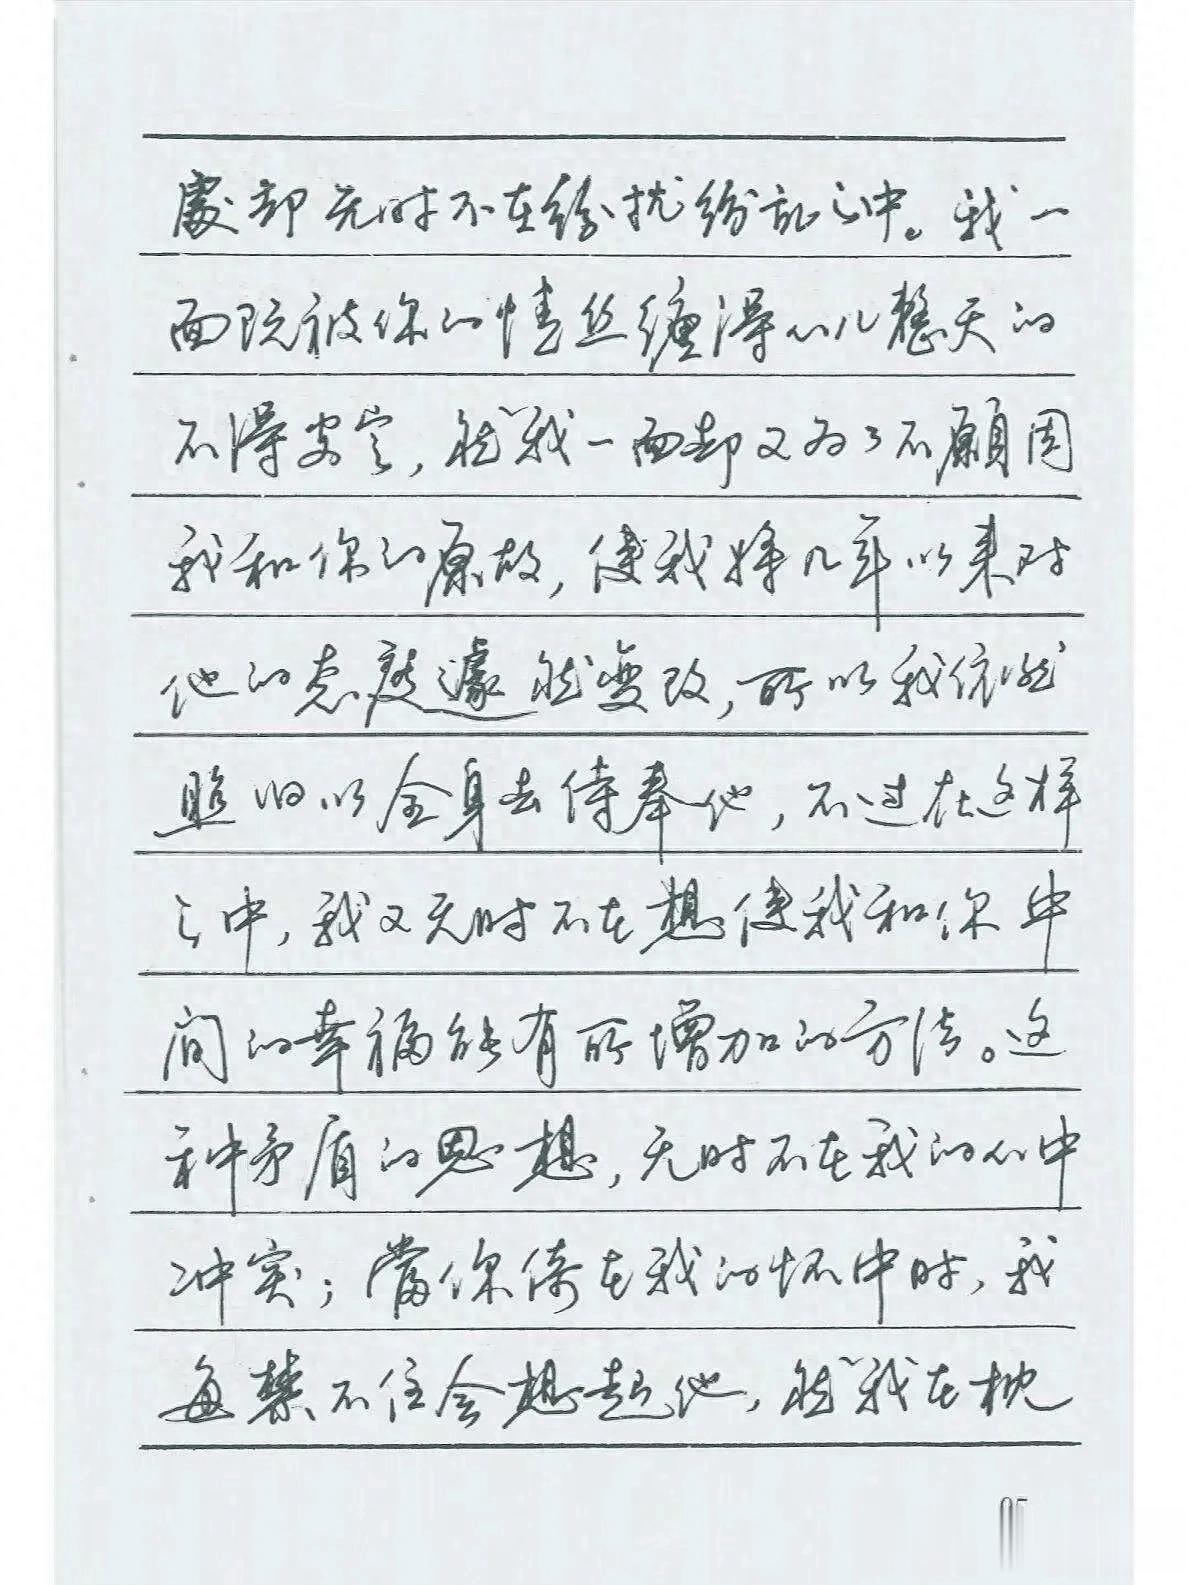 处却无时不在纷扰纷乱之中。我一
面既被你的情丝缠得心儿整天的
不得安定，然我一面却又为了不愿因
我和你的原故，使我将几年以来对
他的态度遽然变改，所以我依然
照旧以全身去侍奉他，不过在这样
之中，我又无时不在想使我和你中
间的幸福能有所增加的方法。这
种矛盾的思想，无时不在我的心中
冲突；當你倚在我的怀中时，我
每禁不住会想起他，然我在枕
05